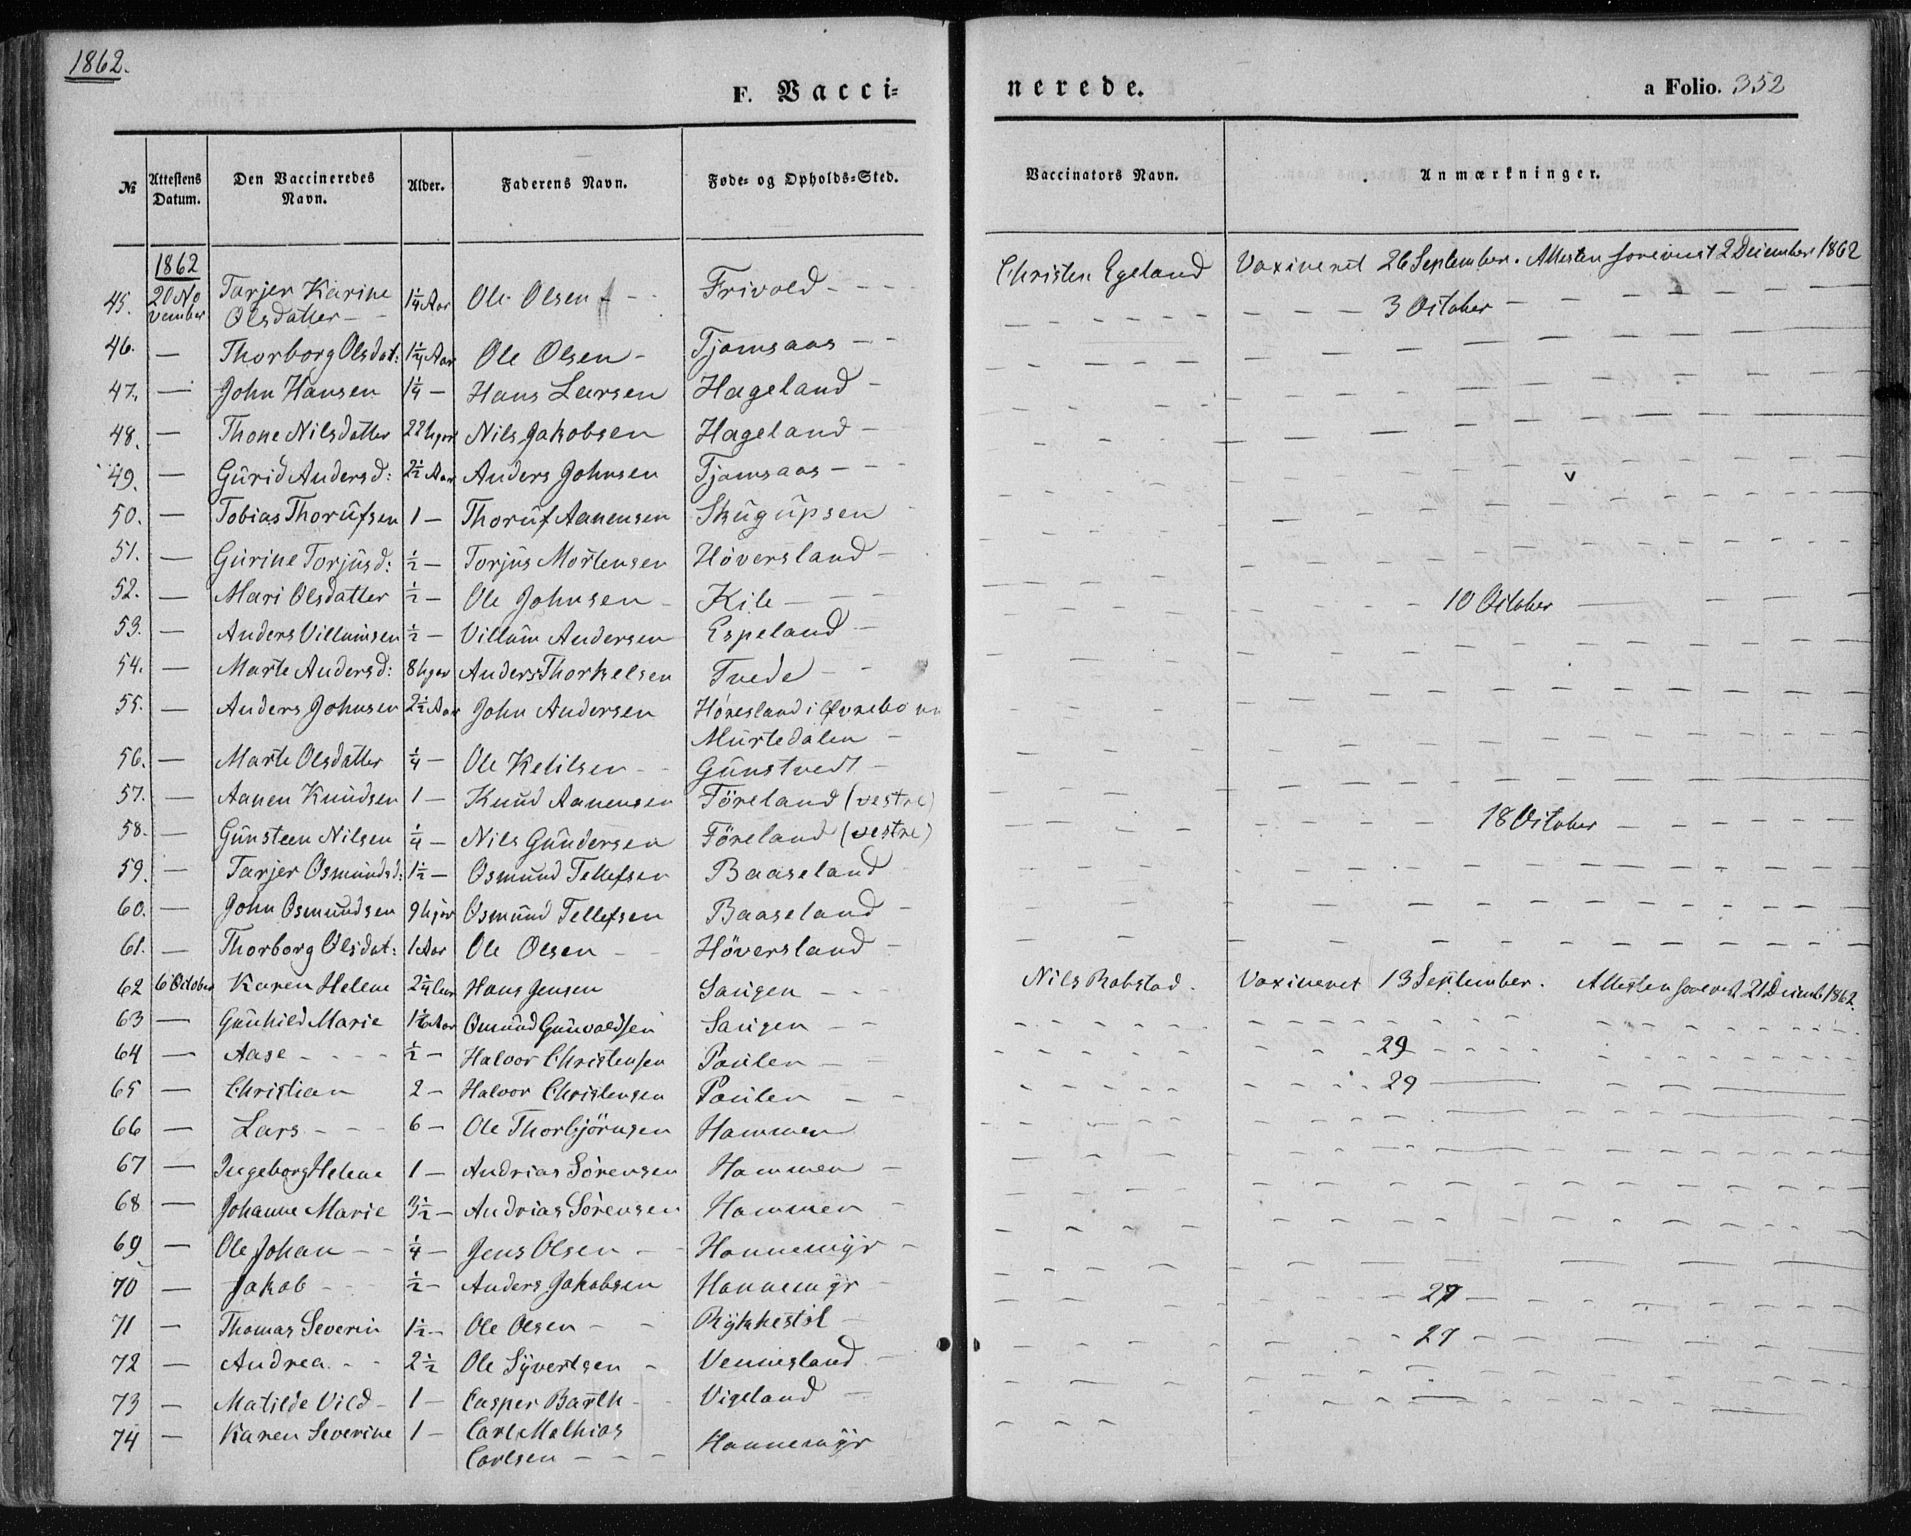 1862.
F. Vacci=
nerede.
a Folio. 352
№ Attestens Datum. Den Vaccineredes Navn. Alder. Faderens Navn. Føde- og Opholds-Sted. Vaccinators Navn. Anmærkninger.
1862
45. 20 No vember Tarjer Karine Olsdatter - 1¼ Aar Ole Olsen - - Frivold - - - Christen Egeland Vaxineret 26 September. Attesten foreviist 2 December 1862
46. — Thorborg Olsdat: 1¼ Aar Ole Olsen - Tjomsaas - - 3 October - - -
47. — John Hansen 1¼ — Hans Larsen Hageland -
48. — Thone Nilsdatter 22 Uger Nils Jakobsen Hageland -
49. — Gurid Andersd: 2½ Aar Anders Johnsen Tjomsaas - - -
50. — Tobias Thorufsen 1 — Thoruf Aanensen Skugupsen
51. — Gurine Torjusd: ½ — Torjus Mortensen Höversland -
52. — Mari Olsdatter ½ — Ole Johnsen - Kile - - - 10 October —
53. — Anders Villumsen ½ — Villum Andersen Espeland -
54. — Marte Andersd: 8 Uger Anders Thorkelsen Tvede -
55. — Anders Johnsen 2½ Aar John Andersen Høresland i Øvrebo
Murtedalen -
56. — Marte Olsdatter ¼ — Ole Ketilsen - - Gunstvedt -
57. — Aanen Knudsen 1 — Knud Aanensen Föreland (vestre)
58. — Gunsteen Nilsen ¼ — Nils Gundersen Föreland (vestre) 18 October - - -
59. — Tarjer Osmundsd: 1½ — Osmund Tellefsen Baaseland
60. — John Osmundsen 9 Uger Osmund Tellefsen Baaseland -
61. — Thorborg Olsdat: 1 Aar Ole Olsen - - Höversland -
62 6 October Karen Helene 2¼ Aar Hans Jensen Sangen - - Nils Rabstad. Vaxineret 13 September. Attesten foreviist 21 Decemb 1862.
63 — Gunhild Marie Aar Osmund Gunvaldsen Sangen - -
64 — Aase - - - - ½ — Halvor Christensen Paulen - - 29 - - -
65 — Christian 2 — Halvor Christensen Paulen - - 29 —
66 — Lars - - - 6 — Ole Thorbjörnsen Hammen
67 — Ingeborg Helene 1 — Andrias Sörensen Hammen -
68 — Johanne Marie 3½ — Andrias Sörensen Hammen -
69 — Ole Johan - - ¼ — Jens Olsen - - Hannemyr -
70 — Jakob - - - ½ — Anders Jakobsen Hannemyr - 27 -
71 — Thomas Severin 1½ — Ole Olsen - - Rykkestöl - 27
72 — Andrea - - 2½ Ole Syvertsen - Vennesland -
73 — Matilde Vild - 1 — Casper Barth - - Vigeland -
74 — Karen Severine 1 — Carl Mathias Carlsen - - - Hannemyr